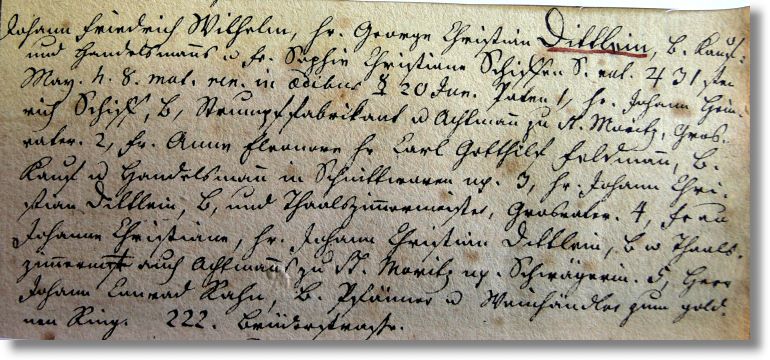 Johann Friedrich Wilhelm, Hr. George Christian Dittlein, B. Kauf-
und Handelsmanns u Fr. Sophie Christiane S. nat. 4 31sten
May. h. 8. mat. ren. in ædibus 20 Jun. Paten 1, Hr. Johann Hein-
rich, B, Strumpffabrikant u Achtmann zu St. Moritz, Gros-
vater. 2, Fr. Anne Eleonore Hr Carl Gotthilf Feldmann, B.
Kauf u Handelsmann in Schnittwaren ux. 3, Hr. Johann Chri-
stian Dittlein, B, und Thaalszimmermeister, Grosvater. 4, Frau
Johanne Christiane, Hr. Johann Christian Dittlein, B u Thaals-
zimmermst auch Achtmanns zu St. Moritz ux. Schwägerin. 5, Herr
Johann Conrad Kahn, B. Pfänner u Weinhändler zum gold-
nen Ring. 222. Brüderstrasse.